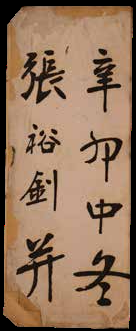 辛卯中冬
張裕釗并